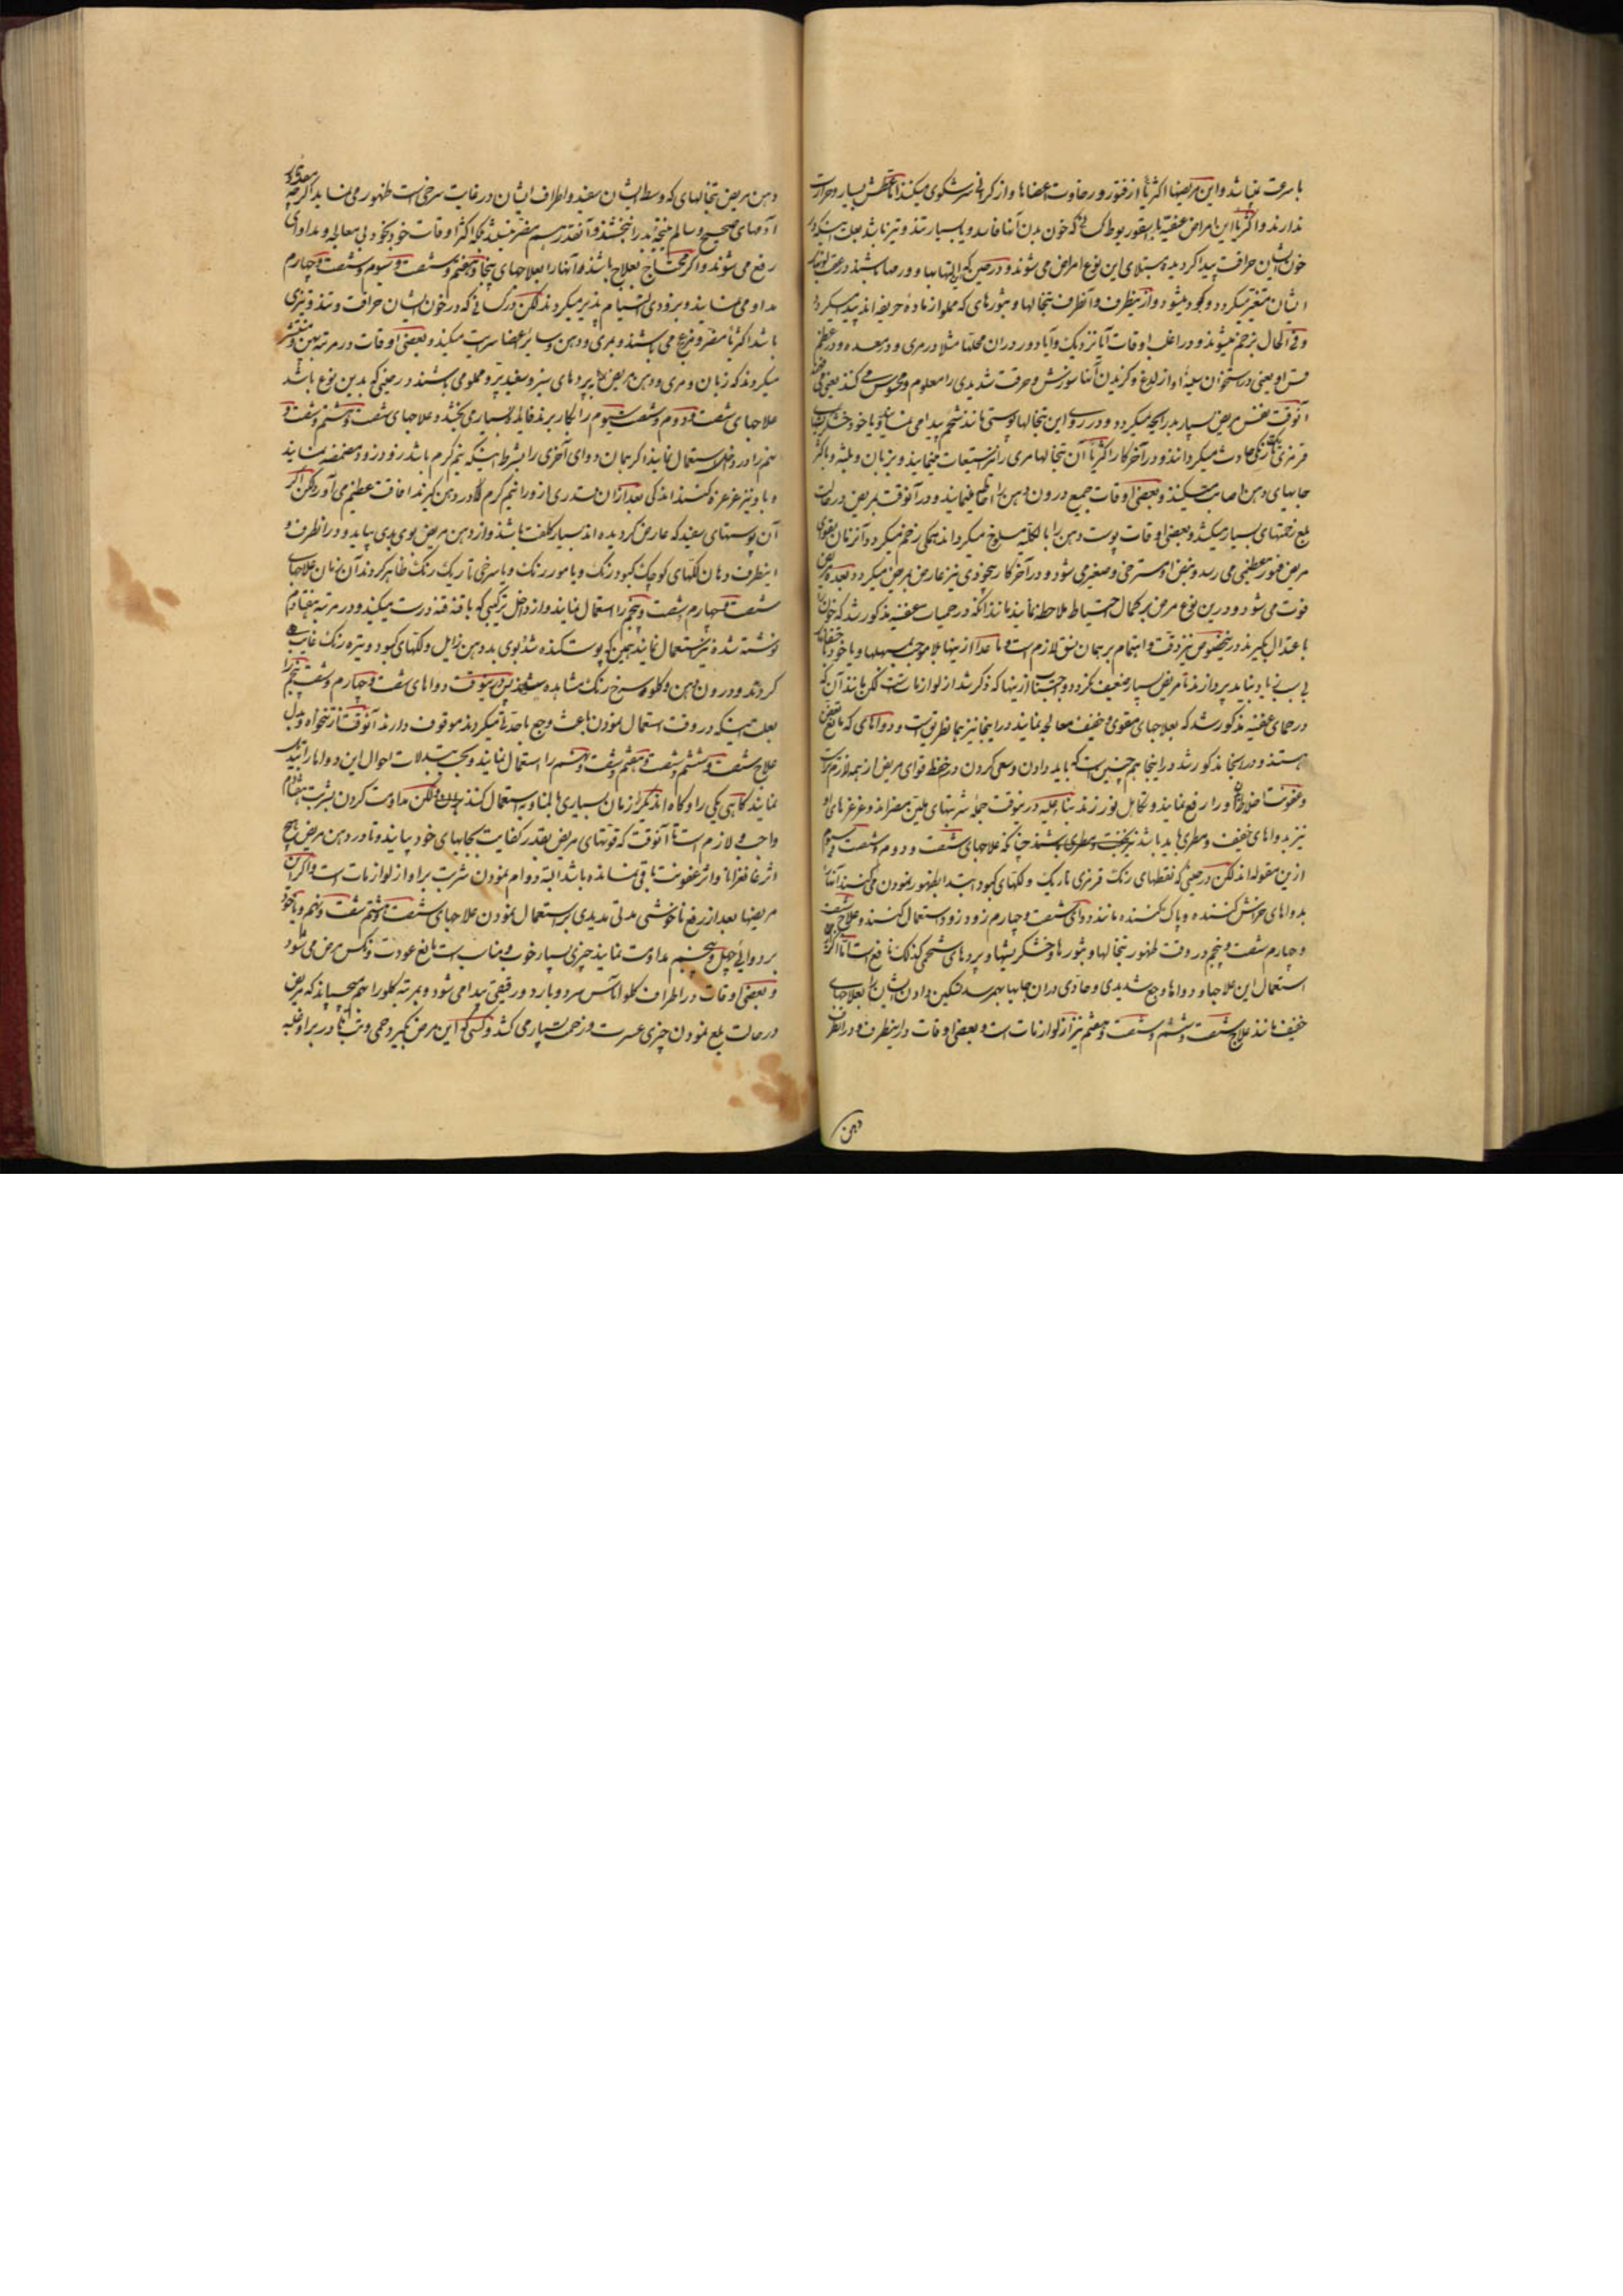 با سرعت نباشد و این مریضها اکثریا از فتور و رخاوت اعضاها و از کرانی سر شکوی میکنند اما عطش بسیار و حرارت
ندارند و اکثریا این امراض عفنیه باسقوربوط کسانی که خون بدن آنها فاسد و یا بسیار تند و تیز باشد بعلت اینکه در
خون ایشان حرافت پیدا کردیده مبتلای این نوع امراض می شوند و در حین که التهابها و ورمها باشند در
ایشان متغیر میکردد و کبود میشود و از اینطرف و آنطرف تبخالها و بثورهای که مملو از ماده حریفه اند پیدا میکردد
و فی الحال بزخم میشوند و در اغلب اوقات آیا نزدیک و آیا دور در ان محلها مثلا در مری و در معده و در عظم
قس او یعنی در استخوان سینهٔ او از لدغ و کزیدن آنها سوزش و حرقت شدیدی را معلوم و محسوس می کنند یعنی
آنوقت نفس مریض بسیار بد رایحه میکردد و در روی این تبخالها پوستی مانند شحم پیدا می نماید و یا خود خشکریشهای
قرمزی تاریکی حادث میکردانند و در آخر کار اکثریا آن تبخالها مری را نیز استیعاب مینمایند و بزبان و بلثه و باکثر
جایهای دهن اصابت میکنند و بعضی اوقات جمیع درون دهن را احاطه مینمایند و در آنوقت مریض در حالت
بلع زحمتهای بسیار میکشد و بعضی اوقات پوست دهن را بالکلیه مسلوخ میکردانند همکی زخم میکردد و آنزمان بقوای
مریض فتور عظیمی می رسد و نبض او مسترخی و صغیر می شود و در آخر کار بیخودی نیز عارض مریض میکردد بعده مریض
فوت می شود و درین نوع مرض بکمال احتیاط ملاحظه نمایند مانند آنکه در حمیات عفنیه مذکور شد که خون را
باعتدال بکیرند در اینخصوص نیز دقت و اهتمام بر همان نسق لازم است و ما عدا ازینها بلا موجب بمسهلها و یا خود باحتقانهای
بی سببی باید نباید پردازند تا مریض بسیار ضعیف نکردد و اجتناب ازینها که ذکر شد از لوازمات است لکن مانند آن که
در حمای عفنیه مذکور شد که بعلاجهای مقوی خفیف معالجه نمایند در اینجا نیز بهمانطریق است و دواهای که مانع تعفن
هستند و در آنجا مذکور شد در اینجا هم چنین است که باید دادن و سعی کردن در حفظ قوای مریض از همه لازم تر است
و عفونت اخلاط او را رفع نمایند و تکاهل نورزند بناء علیه درینوقت جمله شربتهای ملین مضر اند و غرغرهای او
نیز بدواهای خفیف و مطری باید باشد چنانکه علاجهای شصت و دوم و شصت و سیوم
ازین مقوله اند لکن در حینی که نقطهای رنک قرمزی تاریک و لکهای کبود ابتدا بظهور نمودن می کنند آنها را
بدواهای خراش کننده و پاک کننده مانند دوای شصت و چهارم زود زود استعمال کنند و علاج شصت
و چهارم شصت و پنجم در وقت ظهور تبخالها و بثورها و خشکریشها و پردهای شحمی کذلک نافع است اما اکر
استعمال این علاجها و دواها وجع شدیدی و حادی در ان جایها بهم رسد تسکین دادن ایشان را بعلاجهای
خفیف مانند علاج شصت و ششم و شصت و هفتم نیز از لوازمات است و بعضی اوقات در اینطرف و در آنطرف
دهن
دهن مریض تبخالهای که وسط ایشان سفید و اطراف ایشان در غایت سرخی است ظهور می نماید اکرچه
آدمهای صحیح و سالم نتیجهٔ بد را نبخشند و آنقدر هم مضر نیستند بلکه اکثر اوقات خود بخود بی معالجه و مداوای
رفع می شوند و اکر محتاج بعلاج باشند و آنها را بعلاجهای پنجاه و هفتم و شصت و سیوم و شصت و چهارم
مداوا می نمایند و بزودی التیام پذیر میکردند لکن در کسانی که در خون ایشان حرافت و تند و تیزی
باشد اکثریا مضر و مزعج می باشند و بمری و دهن و سایر اعضا سرایت میکنند و بعضی اوقات در مرتبه پهن و منتشر
میکردند که زبان و مری و دهن مریض بپردهای سبز و سفید پر و مملو می باشند در حینی که بدین نوع باشد
علاجهای شصت و دوم و شصت و سیوم را بکار برند فایده بسیاری بخشد و علاجهای شصت و هشتم و شصت و
نهم را در داخل استعمال نمایند اکر همان دوای آخری را بشرط اینکه نیم کرم باشد زود زود مضمضه نمایند
و با و نیز غرغره کنند اندکی بعد از ان قدری از و را نیم کرم کاه در دهن کیرند افاقت عظیم می آورد لکن اکر
آن پوستهای سفید که عارض کردیده اند بسیار کلفت باشند و از دهن مریض بوی بدی بیاید و در انطرف و
اینطرف دهان لکهای کوچک کبود رنک و یا مور رنک و یا سرخی تاریک رنک ظاهر کردند آن زمان علاجهای
شصت و چهارم شصت و پنجم را استعمال نمایند و از داخل ترکیبی که با قند درست میکنند و در مرتبه هفتادم
نوشته شده نیز استعمال نمایند همین که پوست کنده شد بوی بد دهن زایل و لکهای کبود و تیره رنک غایب
کردند و درون دهن و کلو سرخ رنک مشاهده شد پس درینوقت دواهای شصت و چهارم و شصت و پنجم را
بعلت اینکه در وقت استعمال نمودن باعث وجع با حدتی میکردند موقوف دارند آنوقت از تنخواه و بدل
علاج شصت و ششم و شصت و هفتم و شصت و هشتم را استعمال نمایند و بحسب تبدلات احوال این دواها را تبدیل
نمایند کاهی یکی را و کاه دیکر را زمان بسیاری بالمناوبه استعمال کنند و لکن مداومت کردن بشربت هفتادم
واجب و لازم است تا آنوقت که قوتهای مریض بقدر کفایت بجایهای خود بیایند و تا در دهن مریض هیچ
اثر غانغرانا و اثر عفونت باقی نمانده باشد البته دوام نمودن شربت بر او از لوازمات است و اکر آن
مریضها بعد از رفع ناخوشی مدتی مدیدی بر استعمال نمودن علاجهای شصت و هشتم شصت و نهم و یا خود
بر دوای چهل و پنجم مداومت نمایند چیزی بسیار خوب و مناسب است مانع عودت و نکس مرض می شود
و بعضی اوقات در اطراف کلو اماس سرد و بارد و رقیقی پیدا می شود و بمرتبه کلو را هم میچسپاند که مریض
در حالت بلع نمودن چیزی عسرت و زحمت بسیار می کشد و کسی که این مرض بکیرد حمی و تب نادر بر او غلبه